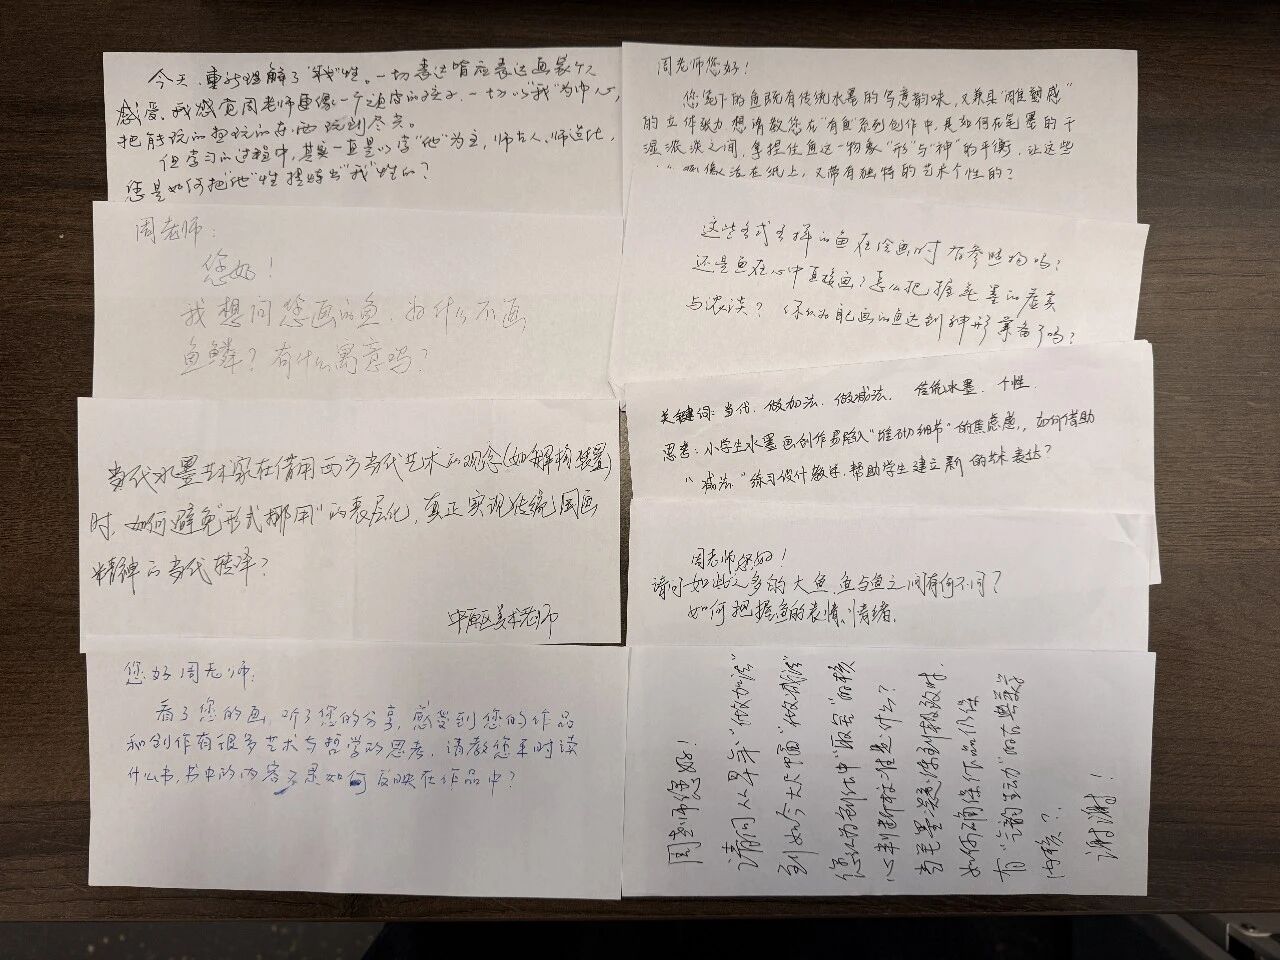 今天,重新理解了"我"性。一切表达皆应表达画家个人
感受,我感觉周老师更像一个顽皮的孩子,一切以"我"为中心,
把能玩的想玩的东西玩到尽兴。
但学习的过程中,其实一直是以学"他"为主,师古人、师造化,
您是如何把"他"性提炼出"我"性的?
周老师:
您好!
我想问您画的鱼,为什么不画
鱼鳞?有什么寓意吗?
当代水墨艺术家在借用西方当代艺术的观念(如解构、装置)
时,如何避免"形式挪用"的表层化,真正实现传统国画
精神的当代转译?
中原区美术老师
您好周老师:
看了您的画,听了您的分享,感受到您的作品
和创作有很多艺术与哲学的思考,请教您平时读
什么书,书中的内容又是如何反映在作品中?
周老师您好!
您笔下的鱼既有传统水墨的写意韵味,又兼具"雕塑感"
的立体张力,想请教您在"有鱼"系列创作中,是如何在笔墨的干
湿浓淡之间,拿捏住鱼这一物象"形"与"神"的平衡,让这些
像活在纸上,又带有独特的艺术个性的?
这些各式各样的鱼在绘画时有参照物吗?
还是鱼在心中直接画?怎么把握笔墨的虚实
与浓淡?你认为自己画的鱼达到神形兼备了吗?
关键词:当代、做加法、做减法、传统水墨、个性
思考:小学生水墨画创作易陷入"堆砌细节"的焦虑感,如何借助
"减法"练习设计教学,帮助学生建立新的艺术表达?
周老师您好!
请问如此之多的大鱼,鱼与鱼之间有何不同?
如何把握鱼的表情、情绪。
周老师您好!
请问从早年"做加法"
到如今大尺幅"做减法"
您认为创作中"取舍"的核
心判断标准是什么?
当笔墨凝练到极致时,
如何确保作品仍保
有"气韵生动"的古典美学
内核?
谢谢!